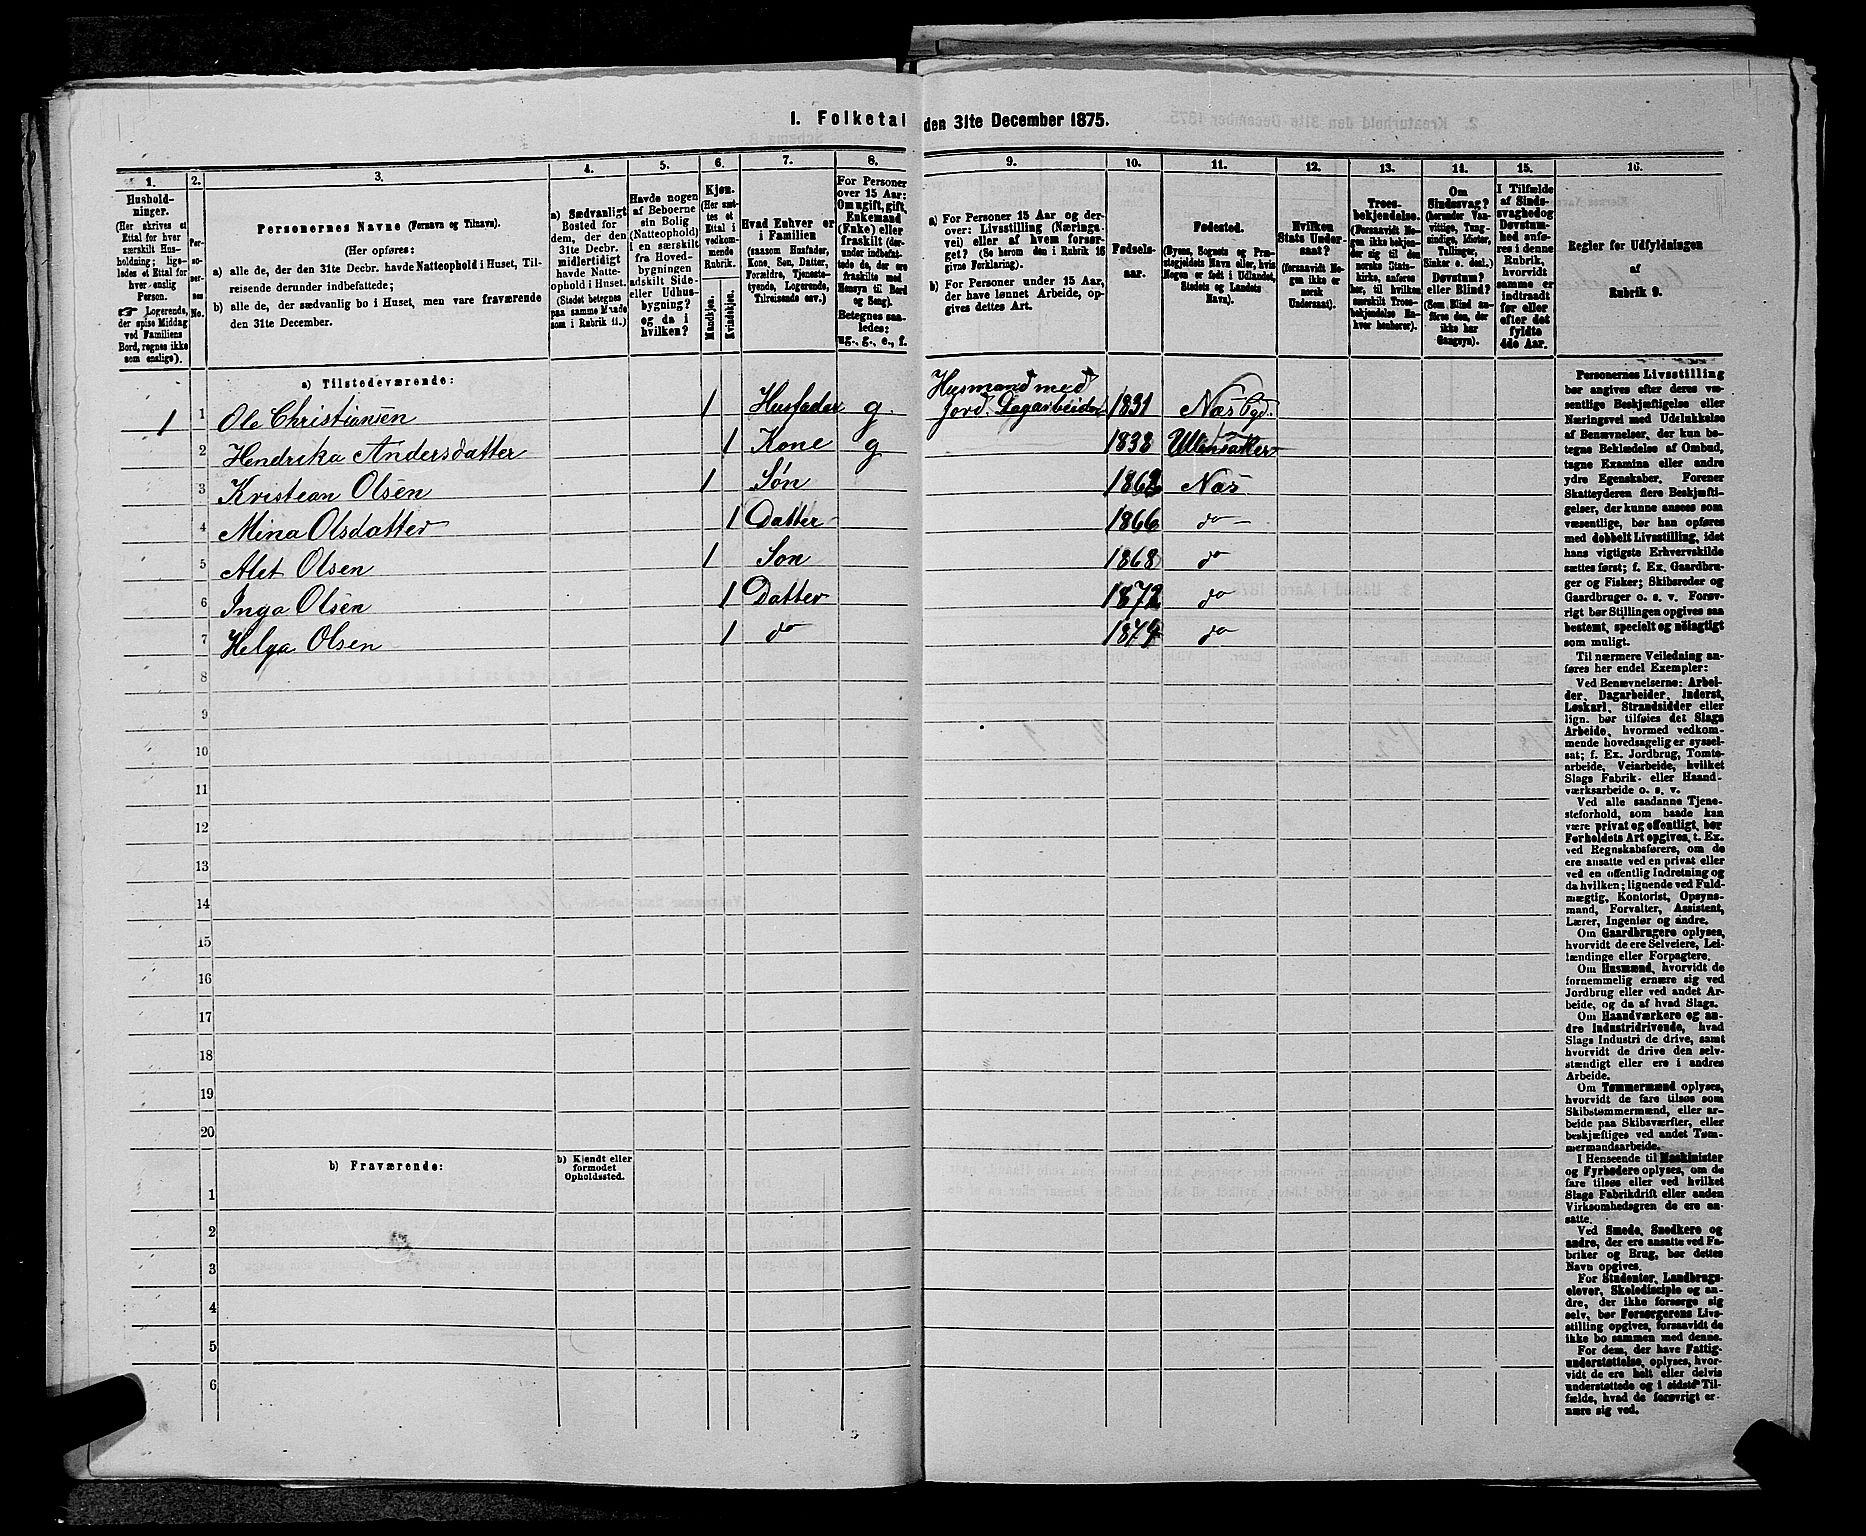 I. Folketal den 31te December 1875.
1.
Hushold-
ninger.
(Her skrives et
Ettal for hver
særskilt Hus-
holdning; lige-
ledes et Ettal for
hver enslig
Person.
Logerende,
der spise Middag
ved Familiens
Bord, regnes ikke
som enslige).
2.
Per-
so-
ner-
nes
No.
3.
Personernes Navne (Fornavn og Tilnavn).
(Her opføres:
a) alle de, der den 31te Decbr. havde Natteophold i Huset, Til-
reisende derunder indbefattede;
b) alle de, der sædvanlig bo i Huset, men vare fraværende
den 31te December.
4.
a) Sædvanligt
Bosted for
dem, der den
31te Decbr.
midlertidigt
havde Natte-
ophold i Huset.
(Stedet betegnes
paa samme Maade
som i Rubrik 11.)
5.
Havde nogen
af Beboerne
sin Bolig
(Natteophold)
i en særskilt
fra Hoved-
bygningen
adskilt Side-
eller Udhus-
bygning?
og da i
hvilken?
6.
Kjøn.
(Her sæt-
tes et
Ettal i
vedkom-
mende
Rubrik.
Mandkjøn.
Kvindekjøn.
7.
Hvad Enhver er
i Familien
(saasom Husfader,
Kone, Søn, Datter,
Forældre, Tjeneste-
tyende, Logerende,
Tilreisende osv.)
8.
For Personer
over 15 Aar:
Om ugift, gift,
Enkemand
(Enke) eller
fraskilt (der-
under indbefat-
tede de, der ere
fraskilte med
Hensyn til Bord
og Seng).
Betegnes saa-
ledes:
ug., g., e., f.
9.
a) For Personer 15 Aar og der-
over: Livsstilling (Nærings-
vei) eller af hvem forsør-
get? (Se herom den i Rubrik 16
givne Forklaring).
b) For Personer under 15 Aar,
der have lønnet Arbeide, op-
gives dettes Art.
10.
Fødsels-
aar.
11.
Fødested.
(Byens, Sognets og Præ-
stegjeldets Navn eller, hvis
Nogen er født i Udlandet,
Stedets og Landets
Navn).
12.
Hvilken
Stats Under-
saat?
(forsaavidt No-
gen ikke er
norsk
Undersaat).
13.
Troes-
bekjendelse.
(Forsaavidt No-
gen ikke bekjen-
der sig til den
norske Stats-
kirke, anføres
her, til hvilken
særskilt Troes-
bekjendelse En-
hver henhører).
14.
Om
Sindssvag?
(herunder Van-
vittige, Tung-
sindige, Idioter,
Tullinger,
Sinker o. desl.)
Døvstum?
eller Blind?
(Som Blind an-
føres den, der
ikke har
Gangsyn).
15.
I Tilfælde
af Sinds-
svaghed og
Døvstum-
hed anfø-
res i denne
Rubrik,
hvorvidt
samme er
indtraadt
før eller
efter det
fyldte
4de Aar.
16.
Regler for Udfyldningen
af
Rubrik 9.
a) Tilstedeværende:
1 1 Ole Christiansen 1 Husfader g. Husmand med Jord. Dagarbeider 1831 Næs Pgd.
2 Hendrika Andersdatter 1 Kone g 1838 Ullensaker
3 Kristian Olsen 1 Søn 1862 Næs
4 Mina Olsdatter 1 Datter 1866 do
5 Alet Olsen 1 Son 1868 do
6 Inga Olsen 1 Datter 1872 do
7 Helga Olsen 1 do 1874 do
8
9
10
11
12
13
14
15
16
17
18
19
20
b) Fraværende:
b) Kjendt eller
formodet
Opholdssted.
1
2
3
4
5
6
Personernes Livsstilling
bør angives efter deres væ-
sentlige Beskjæftigelse eller
Næringsvei med Udelukkelse
af Benævnelser, der kun be-
tegne Beklædelse af Ombud,
tagne Examina eller andre
ydre Egenskaber. Forener
Skatteyderen flere Beskjæfti-
gelser, der kunne ansees som
væsentlige, bør han opføres
med dobbelt Livsstilling, idet
hans vigtigste Erhvervskilde
sættes først; f. Ex. Gaardbru-
ger og Fisker; Skibsreder og
Gaardbruger o. s. v. Forøv-
rigt bør Stillingen opgives saa
bestemt, specielt og nøiagtigt
som muligt.
Til nærmere Veiledning an-
føres her endel Exempler:
Ved Benævnelserne: Arbei-
der, Dagarbeider, Inderst,
Løskarl, Strandsidder eller
lign. bør tilføies det Slags
Arbeide, hvormed vedkom-
mende hovedsagelig er syssel-
sat; f. Ex. Jordbrug, Tomte-
arbeide, Veiarbeide, hvilket
Slags Fabrik- eller Haand-
værksarbeide o. s. v.
Ved alle saadanne Tjene-
steforhold, som baade kan
være privat og offentligt, bør
Forholdets Art opgives, t. Ex.
ved Regnskabsførere, om de
ere ansatte ved en privat eller
ved en offentlig Indretning og
da hvilken; lignende ved Fuld-
mægtig, Kontorist, Opsyns-
mand, Forvalter, Assistent,
Lærer, Ingeniør og andre.
Om Gaardbrugere oplyses,
hvorvidt de ere Selveiere, Lei-
lændinge eller Forpagtere.
Om Husmænd, hvorvidt de
fornemmelig ernære sig ved
Jordbrug eller ved andet Ar-
beide, og da af hvad Slags.
Om Haandværkere og an-
dre Industridrivende, hvad
Slags Industri de drive, samt
hvorvidt de drive den selv-
stændigt eller ere i andres
Arbeide.
Om Tømmermænd oplyses,
hvorvidt de fare tilsøs som
Skibstømmermænd, eller ar-
beide paa Skibsværfter, eller
beskjæftiges ved andet Tøm-
mermandsarbeide.
I Henseende til Maskinister
og Fyrbødere oplyses, om de
fare tilsøs eller ved hvilket
Slags Fabrikdrift eller anden
Virksomhedsgren de ere an-
satte.
Ved Smede, Snedkere og
andre, der ere ansatte ved Fa-
briker og Brug, bør dettes
Navn opgives.
For Studenter, Landbrugs-
elever, Skoledisciple og an-
dre, der ikke forsørge sig
selv, bør Forsørgerens Livs-
stilling opgives, forsaavidt de
ikke bo sammen med denne.
For dem, der have Fattig-
understøttelse, oplyses, hvor-
vidt de ere helt eller delvis
understøttede og i sidste Til-
fælde, hvad de forøvrigt er-
nære sig ved.